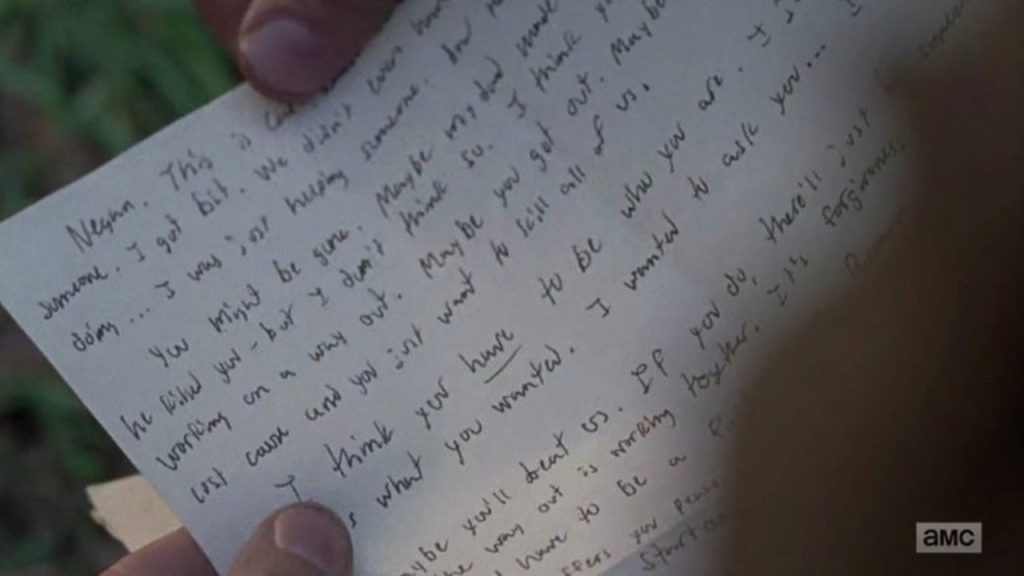 Negan. This is
someone. I got bit. We didn't even
doing... I was just helping someone.
You might be gone. Maybe my dad made
he killed you - but I don't think so. I think
working on a way out. Maybe you got out. Maybe
lost cause and you just want to kill all of us.
I think you have to be who you are. I
what you wanted. I wanted to ask you...
you'll beat us. If you do, there'll just be
way out is working together. It's forgiveness
have to be a
you peace
start
amc